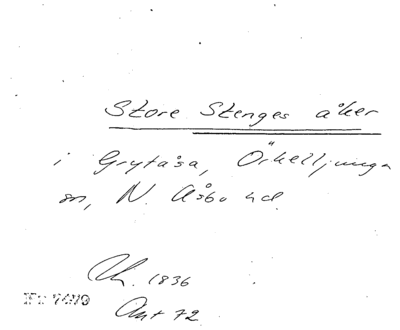 Store Stenges åker
i Grytåsa, Örkelljunga
sn, N. Åsbo hd.
1836
Ant 72